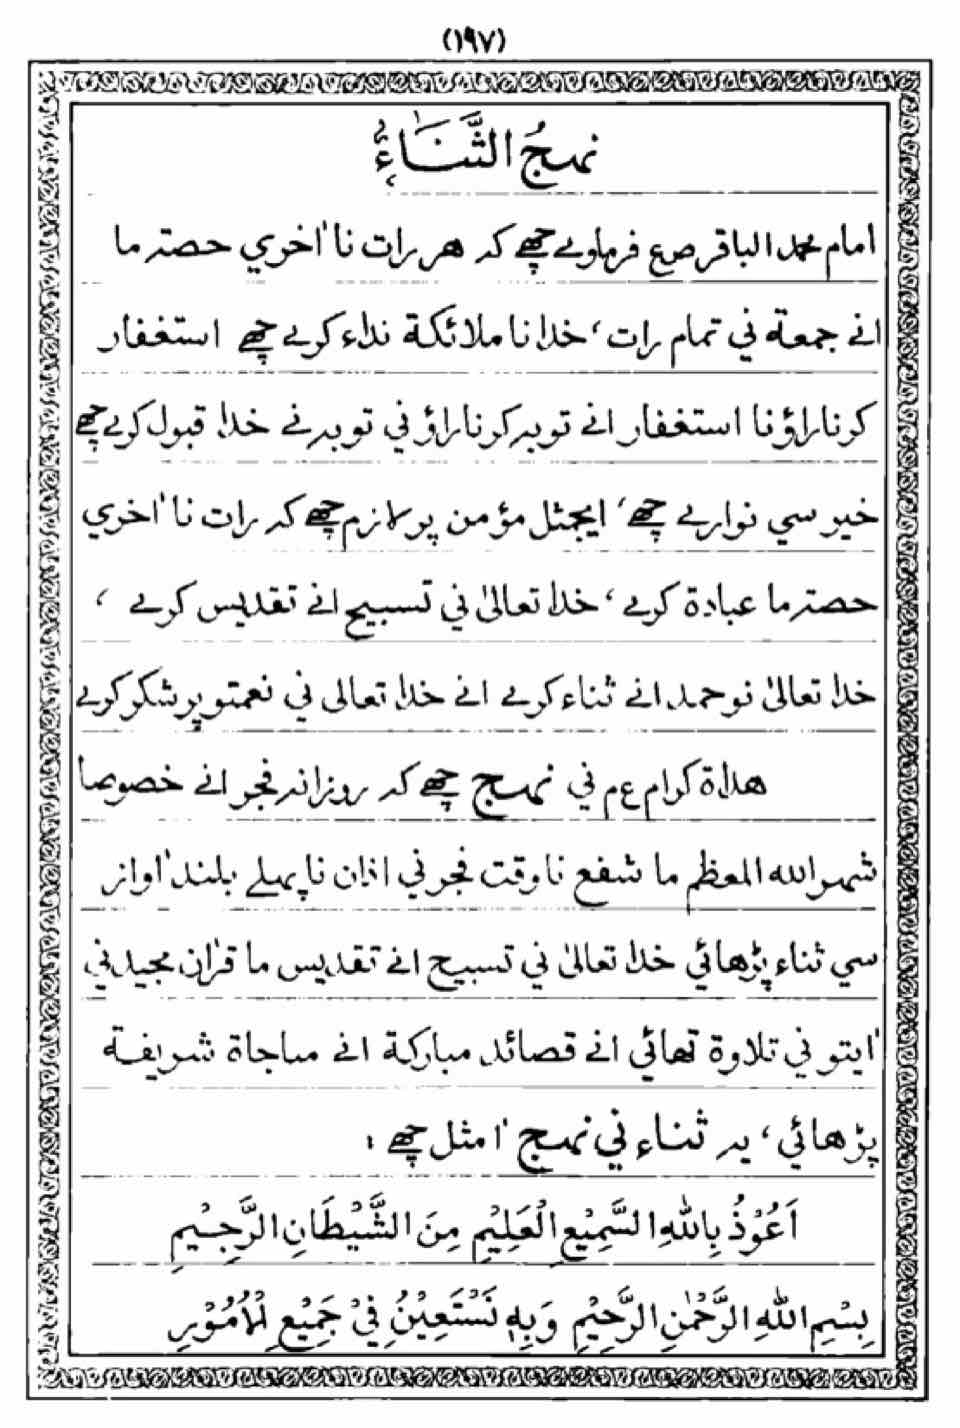 (١٩٧)
نهجُ الثَّنَاءِ
امام محمد الباقر صع فرماوے چھے كہ هر رات نا اٰخري حصتہ ما
انے جمعة ني تمام رات، خدا نا ملائكة نداء كرے چھے استغفار
كرناراؤنا استغفار انے توبہ كرناراؤني توبہ نے خدا قبول كرے چھے
خير سي نوارے چھے، ايجمثل مؤمن پر لازم چھے كہ رات نا اٰخري
حصتہ ما عبادة كرے، خدا تعالىٰ ني تسبيح انے تقديس كرے ،
خدا تعالىٰ نو حمد انے ثناء كرے انے خدا تعالى ني نعمتو پر شكر كرے
هداة كرام ع م ني نهج چھے كہ روزانہ فجر انے خصوصا
شهر الله المعظم ما شفع نا وقت فجر ني اذان نا پهلے بلند اٰواز
سي ثناء پڑهائي خدا تعالىٰ ني تسبيح انے تقديس ما قراٰن مجيد ني
اٰيتو ني تلاوة تهائي انے قصائد مباركة انے مناجاة شريفة
پڑهائي، يہ ثناء ني نهج اٰمثل چھے :
اَعُوْذُ بِاللهِ السَّمِيْعِ الْعَلِيْمِ مِنَ الشَّيْطَانِ الرَّجِيْمِ
بِسْمِ اللهِ الرَّحْمٰنِ الرَّحِيْمِ وَبِهٖ نَسْتَعِيْنُ فِيْ جَمِيْعِ الْاُمُوْرِ